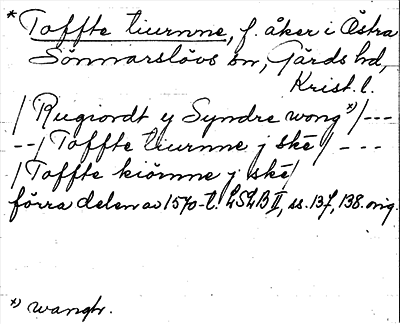 * Toffte tiurnne, f. åker i Östra
Sönnarslövs sn, Gärds hd,
Krist. l.
| Rugiordt y Syndre wong *) | ---
-- | Toffte tiurnne j skè | ---
| Toffte kiömne j skè |
förra delen av 1570-t. LSLB II, ss. 137, 138. orig.
*) wangh.